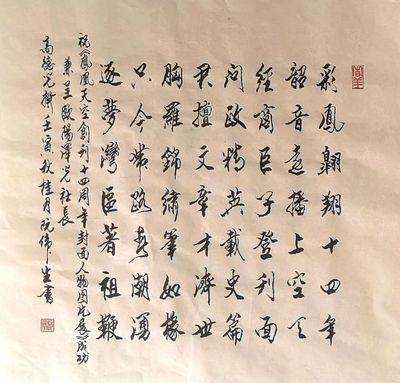 彩鳳翱翔十四年
韶音遠播上空天
經商巨子登刊面
问政精英載史篇
君擅文章才濟世
胸羅錦繡筆如椽
只今帶路春潮湧
逐夢灣區著祖鞭
祝《鳳凰天空創刊十四周年封面人物图片展》成功
兼呈歐陽澤光社長
高德光撰壬寅秋桂月阮偉生書